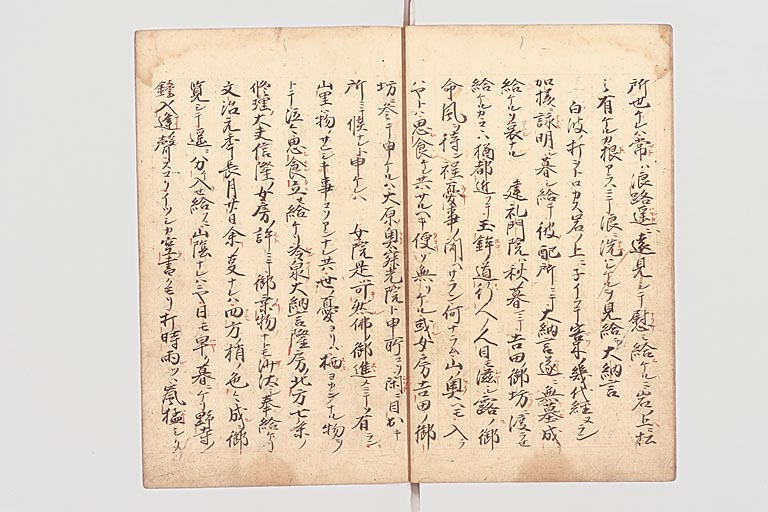 所世ケルハ常ハ浪路遥ニ遠見シテ慰ミ給ケルニ岩ノ上ニ松
ノ有ケルカ根アラスニテ浪ニ洗ハレケルヲ見給テ大納言
白波ノ打ヲトロカス岩ノ上ニ子イラテ客木ノ幾代経ヌラン
加様ニ詠明シ暮シ給テ彼配所ニテ大納言遂ニ無墓成
給ケルソ哀ナル 建礼門院ハ秋ノ暮ニテ吉田御坊ニ渡ラセ
給ケルカコヽハ猶都近クテ玉鉾ノ道行人ノ人目モ滋ク露ノ御
命風ヲ待ン程憂事ノ聞ヘサラン何ナラム山ノ奥ヘモ入ラ
ハヤトハ思食ケレ共サルヘキ便ソ無リケル或女房吉田ノ御
坊ニ参テ申ケルハ大原奥寂光院ト申所コソ閑ニ目出キ
所ニテ候ナレト申ケレハ 女院是可然佛ノ御進メニテソ有ラン
山里ハ物ノサヒシキ事コソアンナレ共世ノ憂ヨリハ栖ヨカンナル物ヲ
トテ泣々思食立セ給ケリ冷泉大納言隆房ノ北方七条ノ
修理大夫信隆ノ女房ノ許ニテ御乗物ナトモ沙汰シ奉給ケリ
文治元年長月廿日余ノ事ナレハ四方梢ノ色々成ヲ御
覧シテ遥ニ分入セ給フ山陰ナレハニヤ日モ早ク暮ニケリ野寺ノ
鐘入逢聲スコクイツシカ空書クモリ打時雨ツヽ嵐猛シク